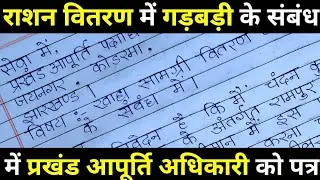 राशन वितरण में गड़बड़ी के संबंध
सेवा में,
प्रखंड आपूर्ति पदाधि
जयनगर, कोडरमा.
झारखण्ड।
विषय: खाद्य सामग्री वितरण
के संबंध में।
निवेदन है कि मैं चंदन कु
अंतर्गत रामपुर
में इस
में प्रखंड आपूर्ति अधिकारी को पत्र